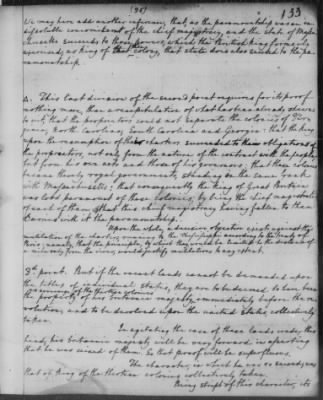 (25)
133
We may here add another inference, that, as the paramountship was an in-
dissoluble concomitant of the chief magistracy, and the state of Massa-
chusetts succeeds to those powers, which the British king formerly
exercised, as king of that colony, that state does also succeed to the pa-
ramountship.
4. This last division of the second point requires for its proof
nothing more, than a recapitulation of what has been already shewn
to wit; that the proprietors could not separate the colonies of Vir-
ginia, North Carolina, South Carolina and Georgia: that the king
upon the resumption of their charters succeeded to the obligations of
the proprietors, not only from the nature of the contract with the people,
but from his own acts and those of his governors: that these colonies
became thereby royal governments, standing on the same ground
with Massachusetts; that consequently the king of Great Britain
was lord paramount of these colonies, by being the chief magistrate
of each of them
having fallen to them
carried with it the paramountship.
Upon the whole, a decisive objection exists against the
mutilation of the charters, namely, that the principles, by which they would be
would justify mutilations to any extent.
3rd point. But if the vacant lands cannot be demanded upon
the titles of individual states, they are to be deemed to have been
the property of his britannic majesty immediately before the re-
volution, and to be devolved upon the united states collectively
taken.
In agitating the case of these lands under this
head, his britannic majesty will be very forward in asserting
that he was seized of them. So that proof will be superfluous.
The character, in which he was so seized, was
that of king of the thirteen colonies collectively taken.
Being stript of this character, its